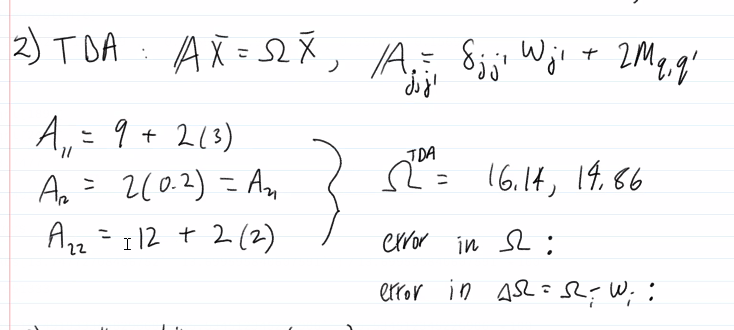 2) TDA : A X̄ = Ω X̄, A_jj' = δ_jj' w_j' + 2M_q,q'
A_11 = 9 + 2(3)
A_12 = 2(0.2) = A_21
A_22 = 12 + 2(2)
Ω^TDA = 16.14, 14.86
error in Ω :
error in ΔΩ = Ω_i - w_i :